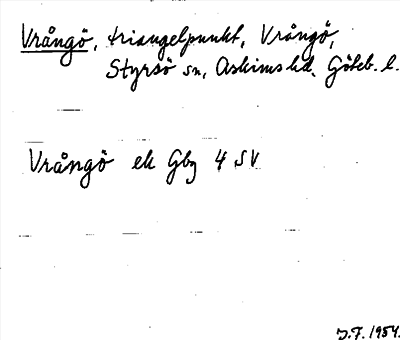 Vrångö, triangelpunkt, Vrångö,
Styrsö sn, Askims hd. Göteb. l.
Vrångö ek Gbg 4 SV
J.F. 1954.